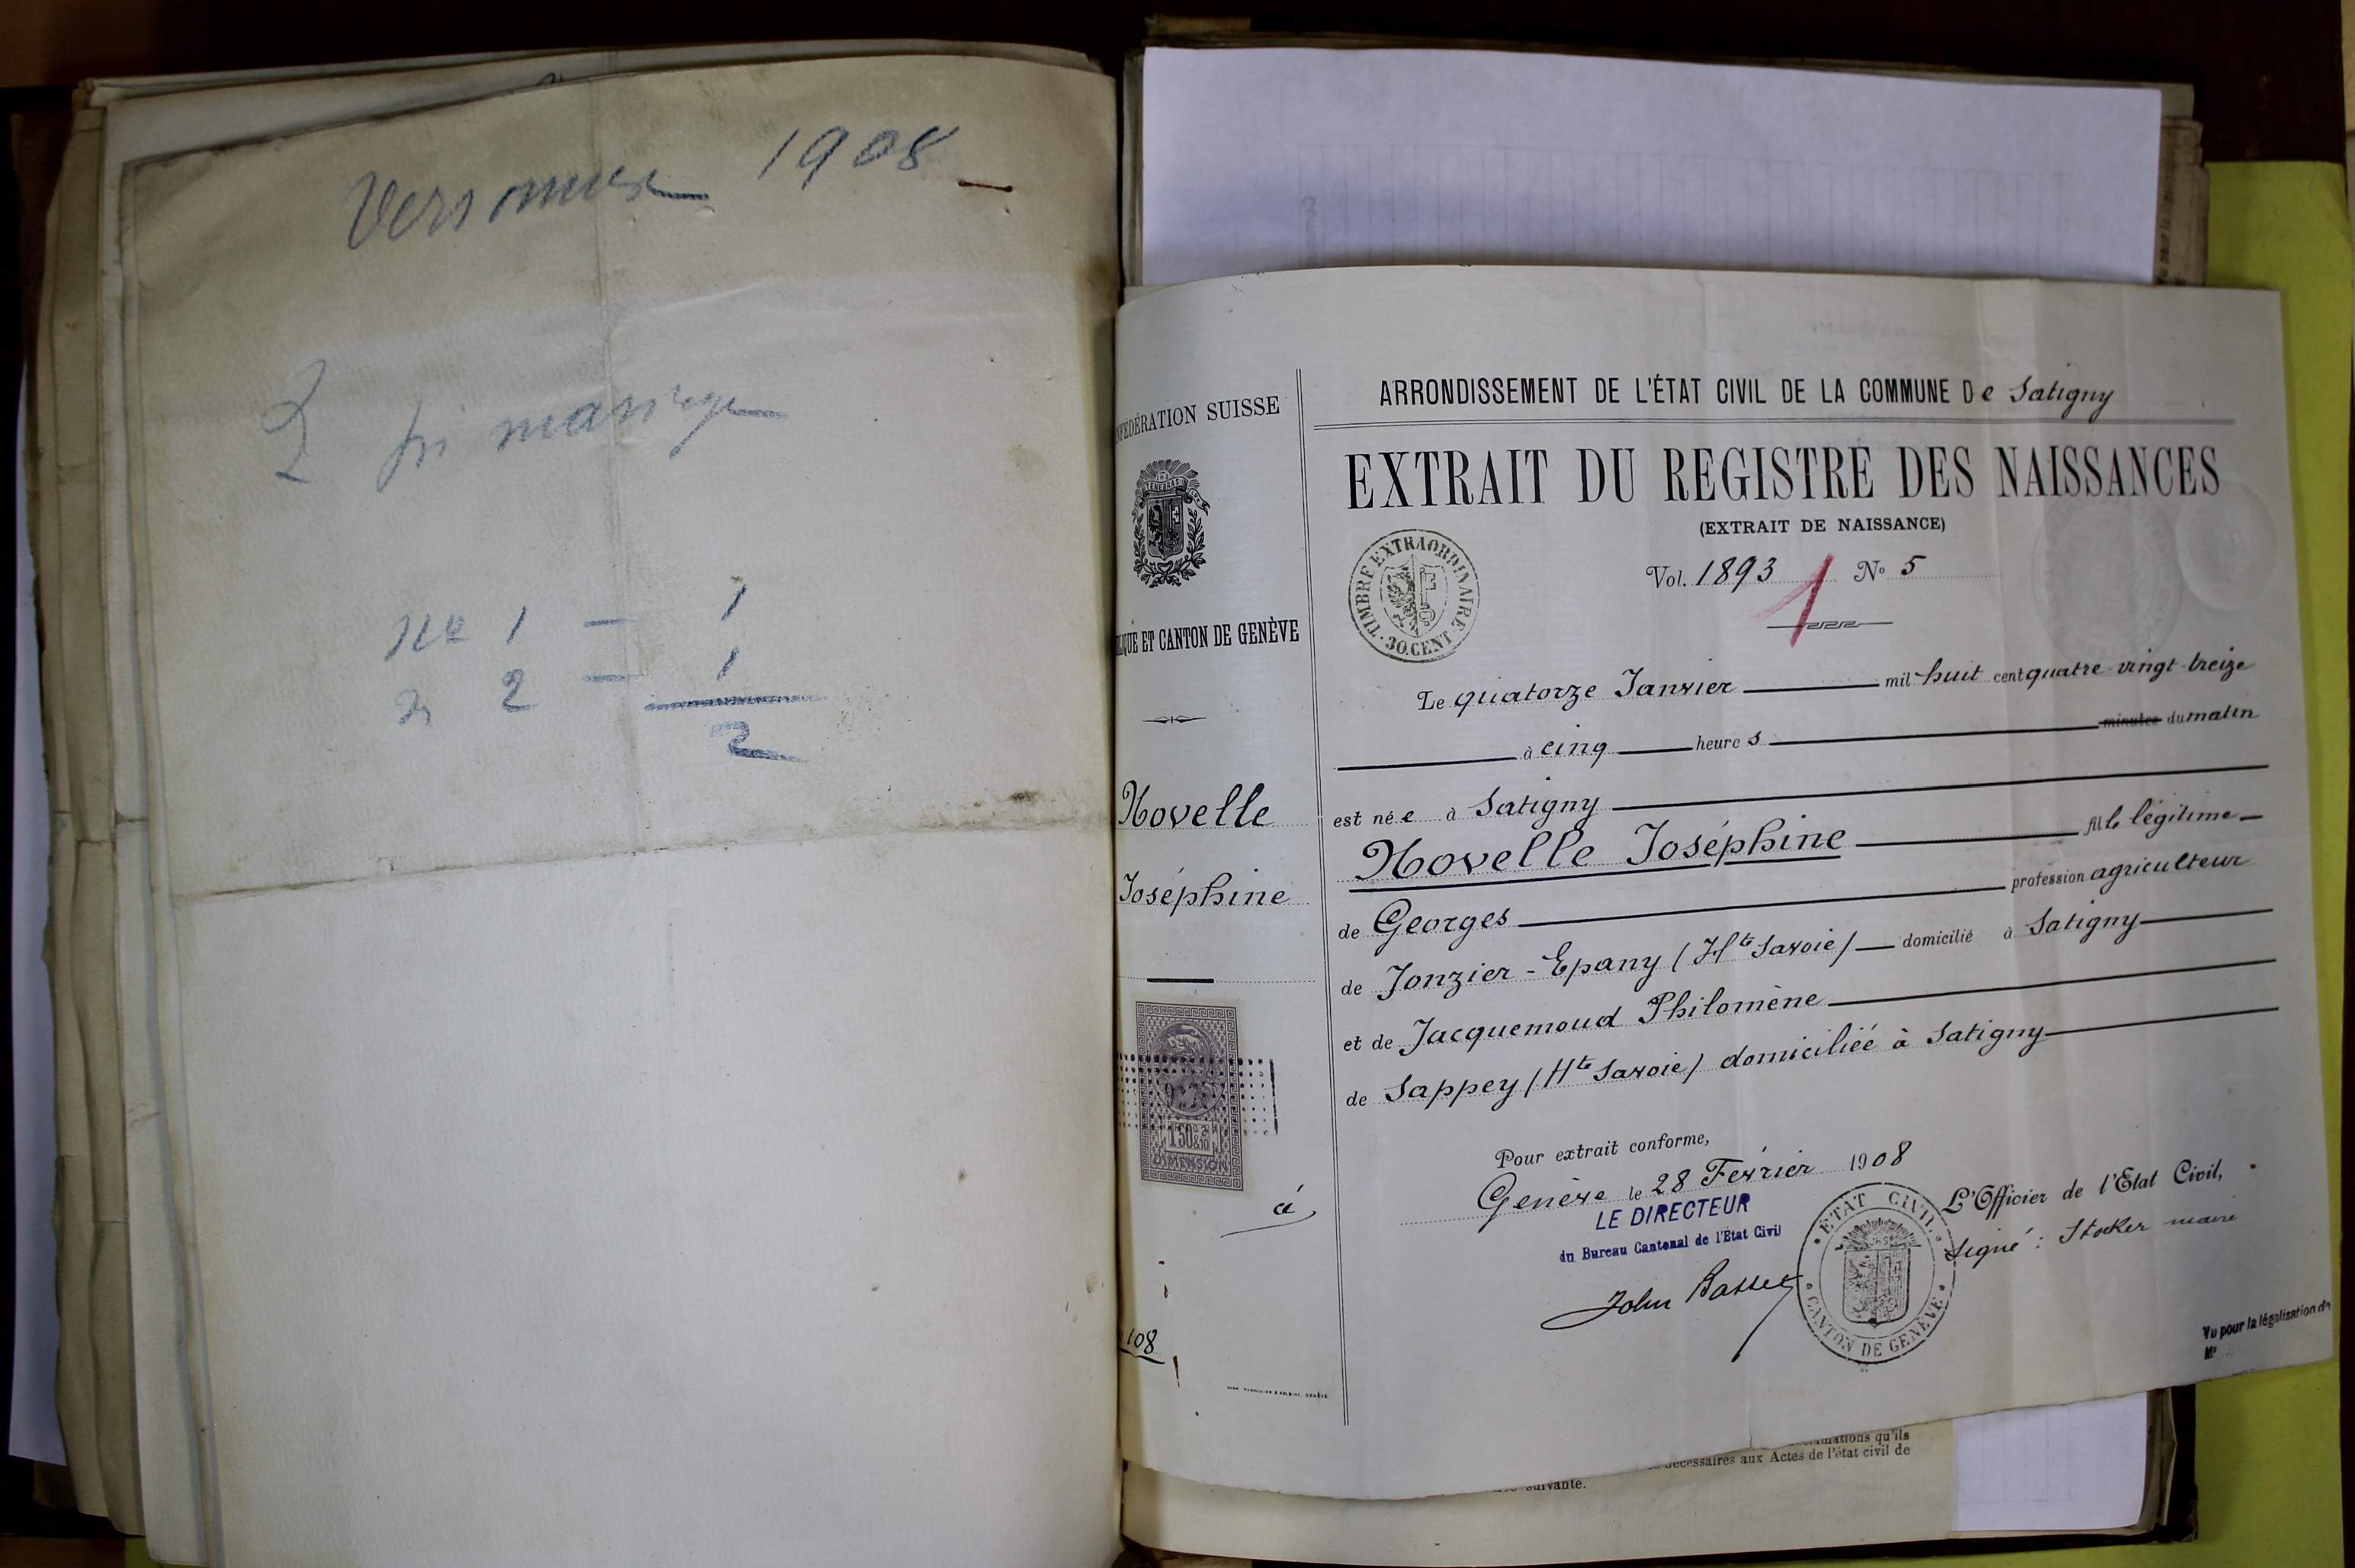 1908
2 mariage
No 1 — 1
2 — 1
2
FÉDÉRATION SUISSE
POST TENEBRAS LUX
LIQUE ET CANTON DE GENÈVE
Novelle
Joséphine
1f50c&2/10
DIMENSION
à
108
ARRONDISSEMENT DE L'ÉTAT CIVIL DE LA COMMUNE De Satigny
EXTRAIT DU REGISTRE DES NAISSANCES
(EXTRAIT DE NAISSANCE)
TIMBRE EXTRAORDINAIRE
30.CENT.
Vol. 1893 No 5
1
Le quatorze Janvier mil huit cent quatre-vingt-treize
à cinq heures minutes du matin
est née à Satigny
Novelle Joséphine fille légitime
de Georges profession agriculteur
de Jonzier-Epany (Hte Savoie) domicilié à Satigny
et de Jacquemoud Philomène
de Sappey (Hte Savoie) domiciliée à Satigny
Pour extrait conforme,
Genève le 28 Février 1908
LE DIRECTEUR
du Bureau Cantonal de l'État Civil
John
ETAT CIVIL
CANTON DE GENÈVE
L'Officier de l'Etat Civil,
Signé: Stocker maire
Vu pour la légalisation de
Mr
qu'ils
nécessaires aux Actes de l'état civil de
suivante.